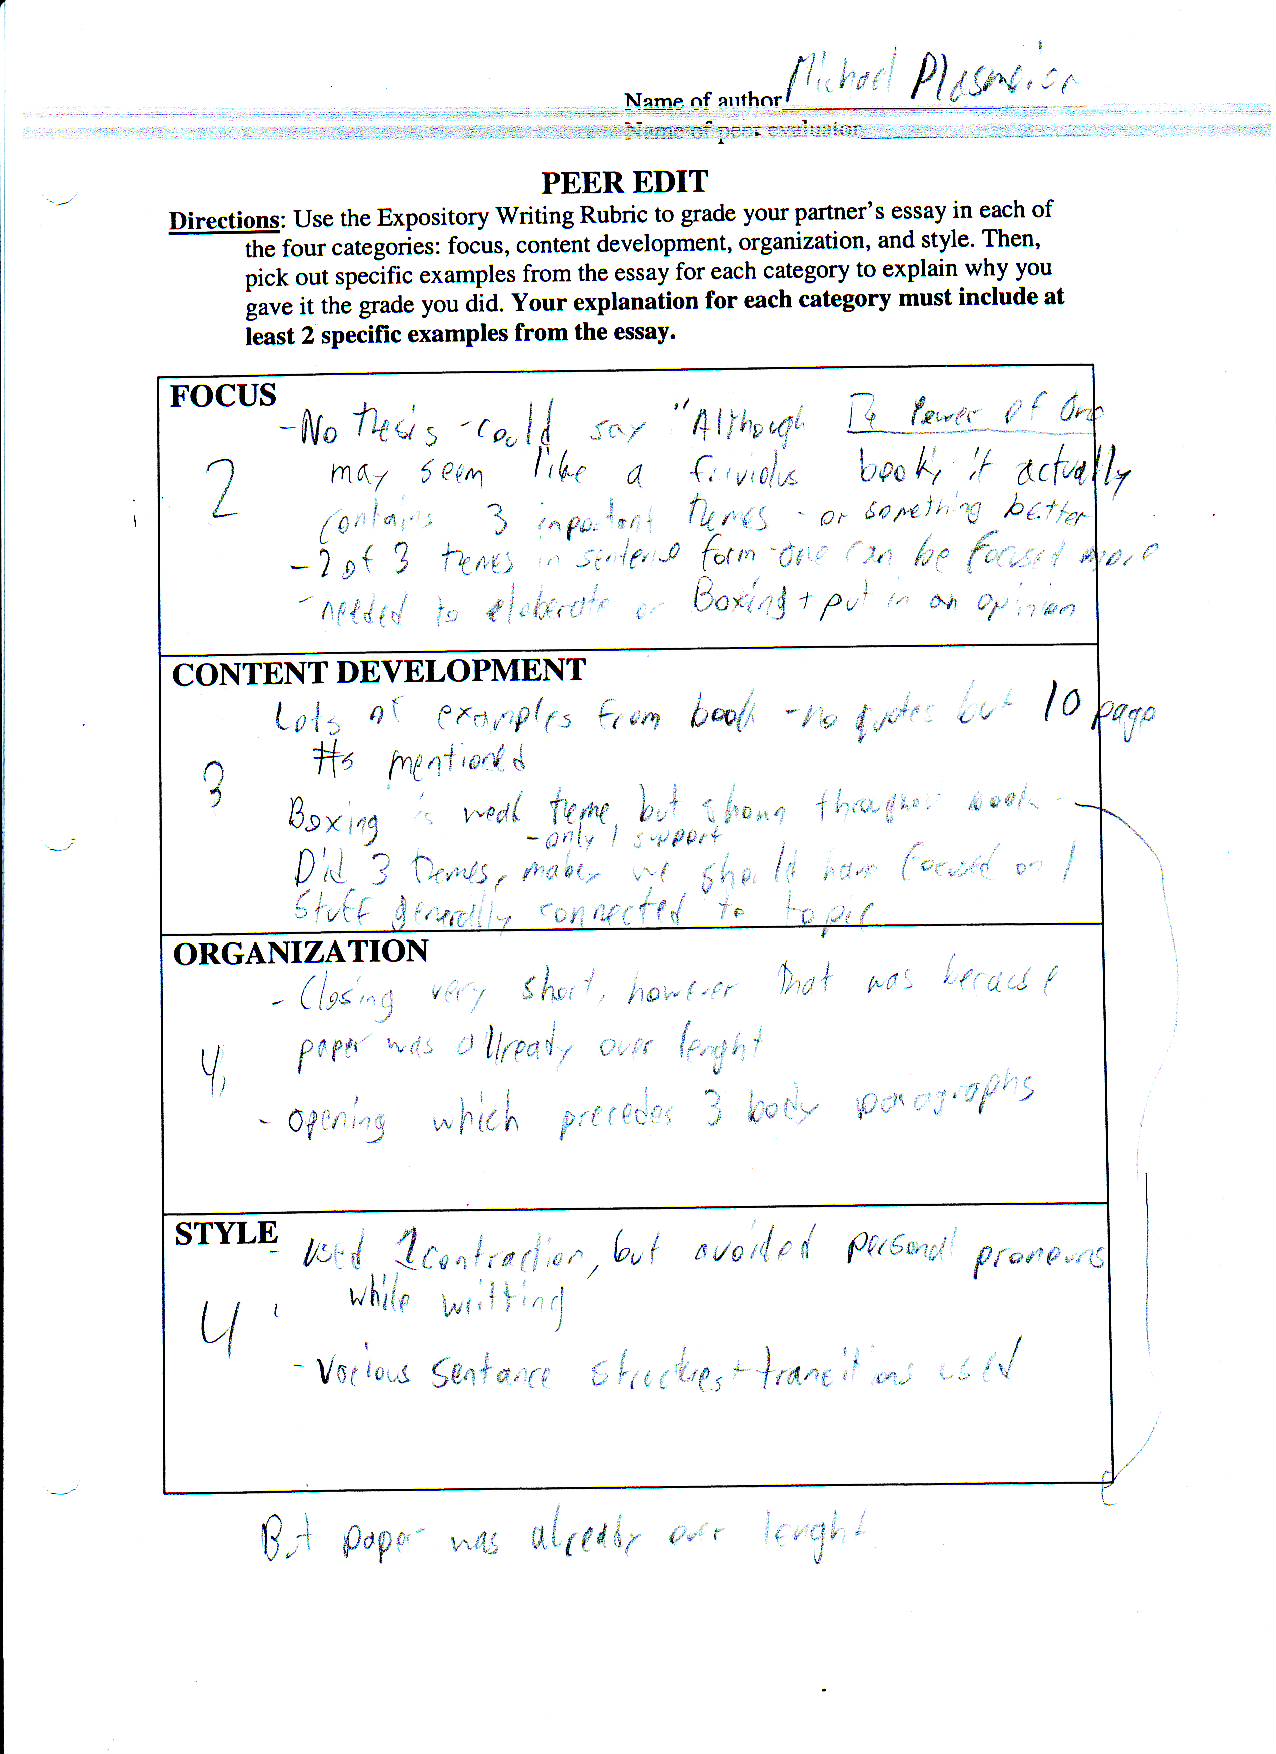 Name of author Michael Plasmeier
Name of peer evaluator
PEER EDIT
Directions: Use the Expository Writing Rubric to grade your partner's essay in each of
the four categories: focus, content development, organization, and style. Then,
pick out specific examples from the essay for each category to explain why you
gave it the grade you did. Your explanation for each category must include at
least 2 specific examples from the essay.
FOCUS
2
-No thesis - could say "Although The Power of One
may seem like a book, it actually
contains 3 important themes - or something better
-2 of 3 themes in sentence form - one can be focused more
-needed to elaborate on Boxing + put in an opinion
CONTENT DEVELOPMENT
3
Lots of examples from book - no quotes but 10 page
#s mentioned
Boxing is weak theme, but strong book
-only 1 support
Did 3 themes, maybe we should have focused on 1
Stuff generally connected to topic
ORGANIZATION
4
- Closing very short, however that was because
paper was allready over lenght
- opening which precedes 3 body paragraphs
STYLE
4
- Used 1 contraction, but avoided personal pronouns
while writting
- Various sentance structures + transitions used
But paper was already over lenght